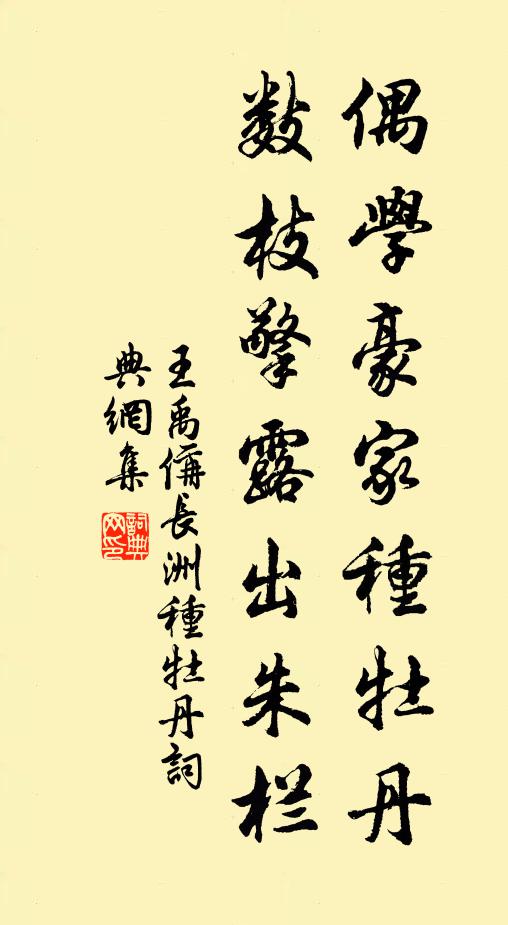 偶學豪家種牡丹
数枝擎露出朱栏
王禹偁長洲種牡丹詞
典網集
詞典
网印